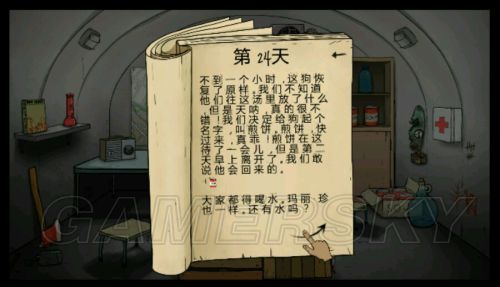 第 24天
不到一个小时,这狗恢
复了原样。我们不知道
他们往这汤里放了什么
,但是天呐,真的很不
错!我们决定给狗起个
名字,叫煎饼。煎饼,快
过来,真乖!煎饼在这
待了一会儿,但是第二
天早上离开了。我们敢
说他会回来的。
大家都得喝水。玛丽 珍
也一样。还有水吗?
GAMERSKY